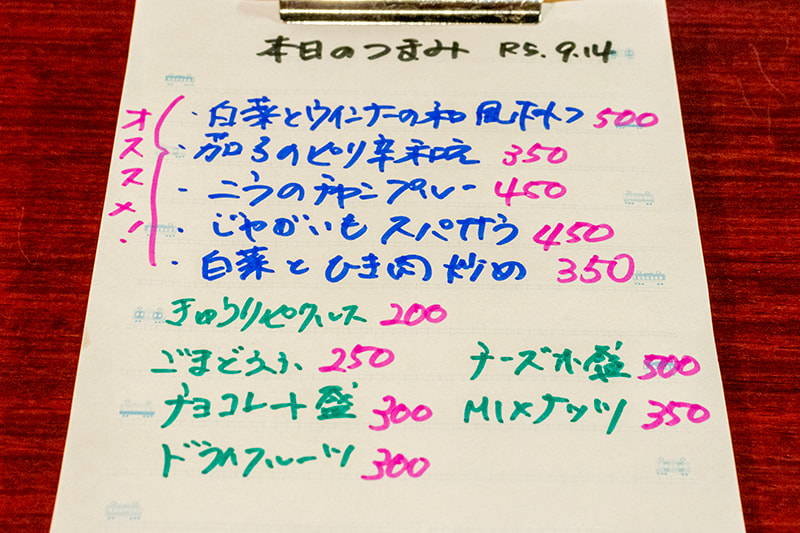 本日のつまみ R5.9.14
オススメ!
・白菜とウインナーの和風トメトフ 500
・茄子のピリ辛和え 350
・ニラのチャンプルー 450
・じゃがいもスパサラ 450
・白菜とひき肉炒め 350
きゅうりピクルス 200
ごまどうふ 250 チーズ小盛 500
チョコレート盛 300 MIXナッツ 350
ドライフルーツ 300